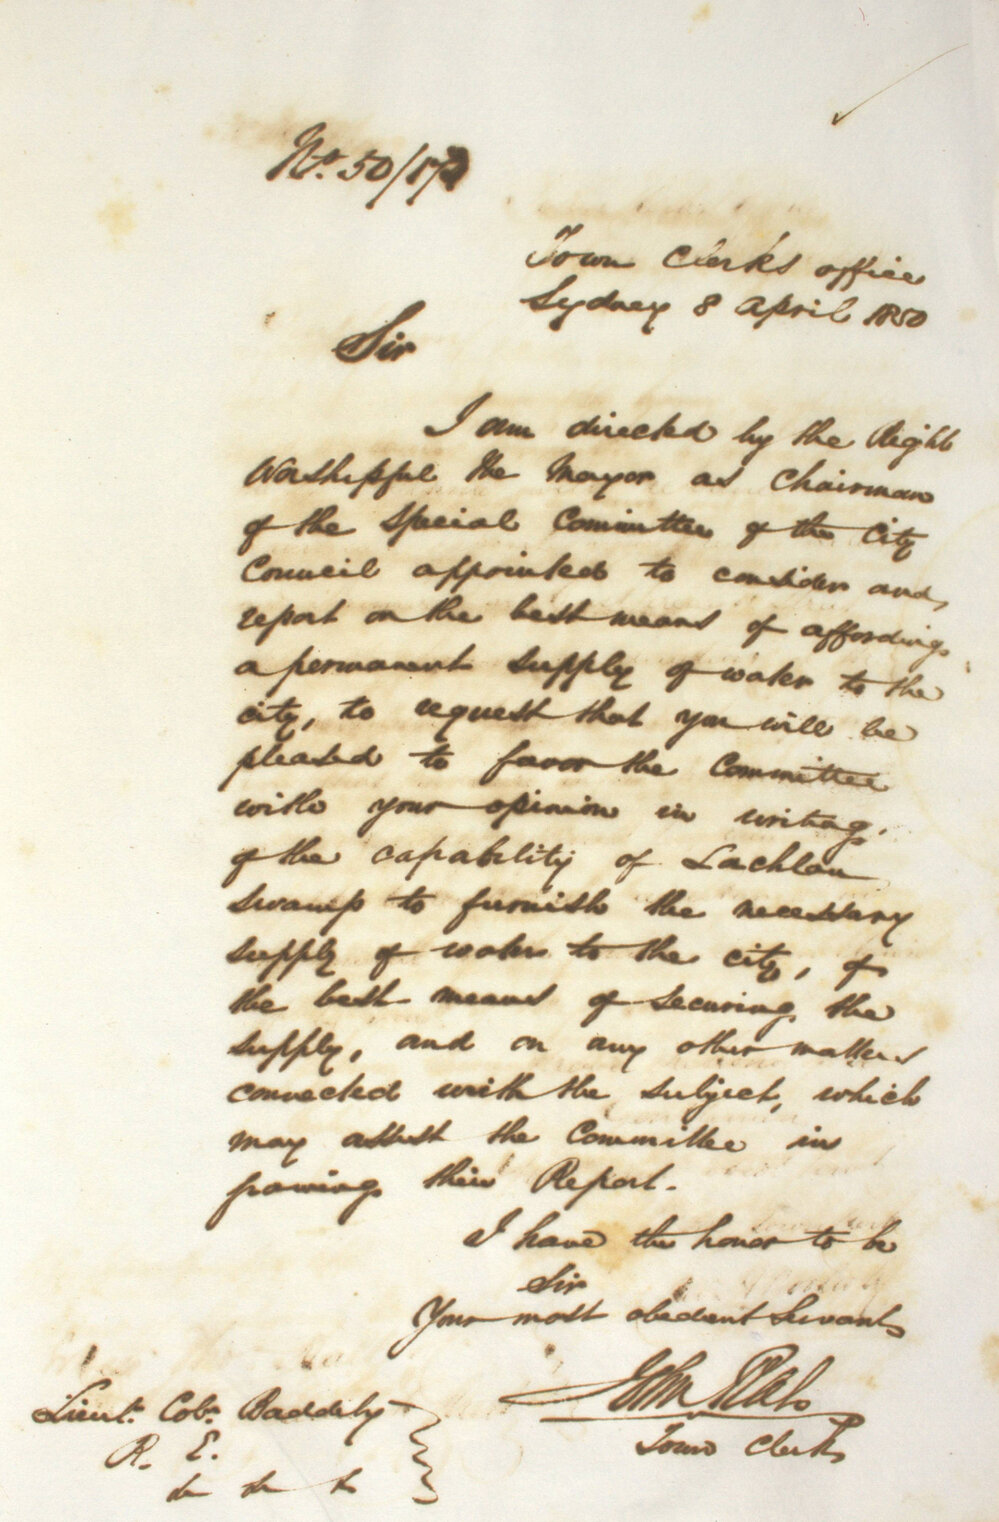 No. 50/17
Town Clerks office
Sydney 8 April 1850
Sir
I am directed by the Right
Worshipful the Mayor as Chairman
of the Special Committee of the City
Council appointed to consider and
report on the best means of affording
a permanent supply of water to the
city, to request that you will be
pleased to favor the Committee
with your opinion in writing,
of the capability of Lachlan
Swamp to furnish the necessary
supply of water to the city, of
the best means of securing the
supply, and on any other matters
connected with the subject, which
may assist the Committee in
framing their Report.
I have the honor to be
Sir
Your most obedient Servant
John
Town Clerk
Lieut. Col. Baddely
R. E.
&c &c &c